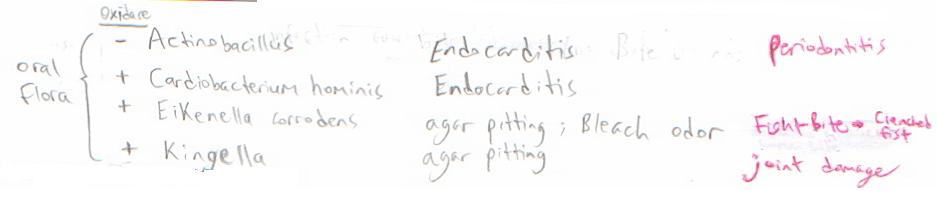 Oxidase
- Actinobacillus Endocarditis Periodontitis
oral flora + Cardiobacterium hominis Endocarditis
+ Eikenella corrodens agar pitting; Bleach odor Fight-Bite → Clenched fist
+ Kingella agar pitting joint damage